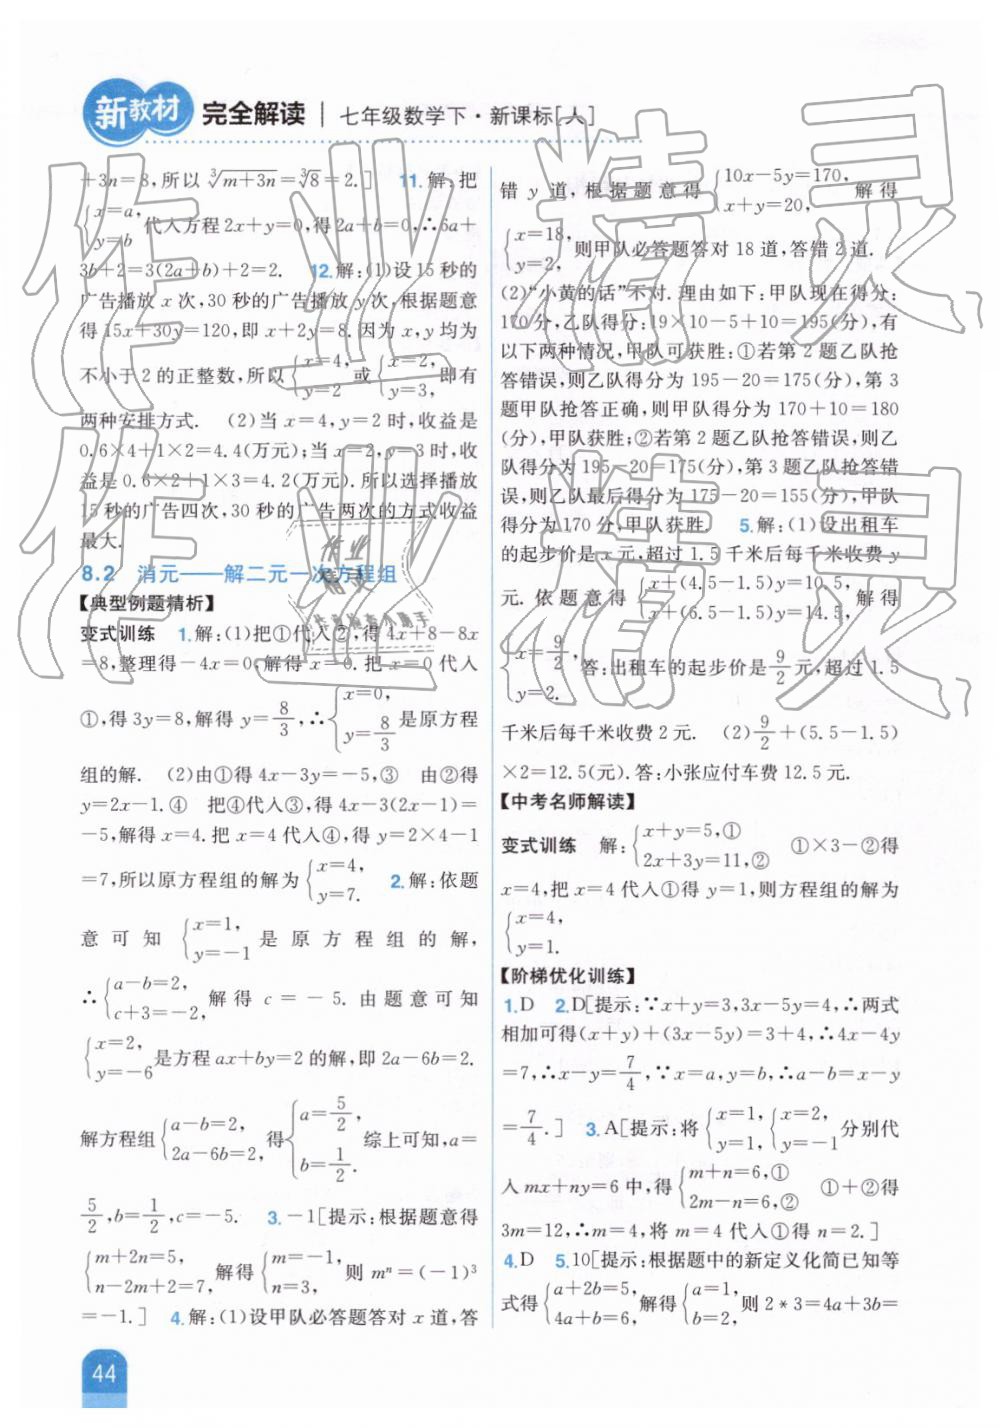 新教材 完全解读 | 七年级数学下·新课标[人]
+3n=8,所以∛(m+3n)=∛8=2.] 11.解:把
{x=a, y=b 代入方程2x+y=0,得2a+b=0,∴6a+
3b+2=3(2a+b)+2=2. 12.解:(1)设15秒的
广告播放x次,30秒的广告播放y次,根据题意
得15x+30y=120,即x+2y=8.因为x,y均为
不小于2的正整数,所以{x=4, y=2 或{x=2, y=3, 即有
两种安排方式. (2)当x=4,y=2时,收益是
0.6×4+1×2=4.4(万元);当x=2,y=3时,收
益是0.6×2+1×3=4.2(万元).所以选择播放
15秒的广告四次,30秒的广告两次的方式收益
最大.
8.2 消元——解二元一次方程组
【典型例题精析】
变式训练 1.解:(1)把①代入②,得4x+8-8x
=8,整理得-4x=0,解得x=0.把x=0代入
①,得3y=8,解得y=8/3,∴{x=0, y=8/3 是原方程
组的解. (2)由①得4x-3y=-5,③ 由②得
y=2x-1.④ 把④代入③,得4x-3(2x-1)=
-5,解得x=4.把x=4代入④,得y=2×4-1
=7,所以原方程组的解为{x=4, y=7. 2.解:依题
意可知{x=1, y=-1 是原方程组的解,
∴{a-b=2, c+3=-2, 解得c=-5.由题意可知
{x=2, y=-6 是方程ax+by=2的解,即2a-6b=2.
解方程组{a-b=2, 2a-6b=2, 得{a=5/2, b=1/2. 综上可知,a=
5/2,b=1/2,c=-5. 3.-1[提示:根据题意得
{m+2n=5, n-2m+2=7, 解得{m=-1, n=3, 则mⁿ=(-1)³
=-1.] 4.解:(1)设甲队必答题答对x道,答
错y道,根据题意得{10x-5y=170, x+y=20, 解得
{x=18, y=2, 则甲队必答题答对18道,答错2道.
(2)“小黄的话”不对.理由如下:甲队现在得分:
170分,乙队得分:19×10-5+10=195(分),有
以下两种情况,甲队可获胜:①若第2题乙队抢
答错误,则乙队得分为195-20=175(分),第3
题甲队抢答正确,则甲队得分为170+10=180
(分),甲队获胜;②若第2题乙队抢答错误,则乙
队得分为195-20=175(分),第3题乙队抢答错
误,则乙队最后得分为175-20=155(分),甲队
得分为170分,甲队获胜. 5.解:(1)设出租车
的起步价是x元,超过1.5千米后每千米收费y
元.依题意得{x+(4.5-1.5)y=10.5, x+(6.5-1.5)y=14.5, 解得
{x=9/2, y=2. 答:出租车的起步价是9/2元,超过1.5
千米后每千米收费2元. (2)9/2+(5.5-1.5)
×2=12.5(元).答:小张应付车费12.5元.
【中考名师解读】
变式训练 解:{x+y=5,① 2x+3y=11,② ①×3-②得
x=4,把x=4代入①得y=1,则方程组的解为
{x=4, y=1.
【阶梯优化训练】
1.D 2.D[提示:∵x+y=3,3x-5y=4,∴两式
相加可得(x+y)+(3x-5y)=3+4,∴4x-4y
=7,∴x-y=7/4,∵x=a,y=b,∴a-b=x-y
=7/4.] 3.A[提示:将{x=1, y=1, {x=2, y=-1 分别代
入mx+ny=6中,得{m+n=6,① 2m-n=6,② ①+②得
3m=12,∴m=4,将m=4代入①得n=2.]
4.D 5.10[提示:根据题中的新定义化简已知等
式得{a+2b=5, 4a+b=6, 解得{a=1, b=2, 则2*3=4a+3b=
44
作业精灵
作业精灵
作业
精灵